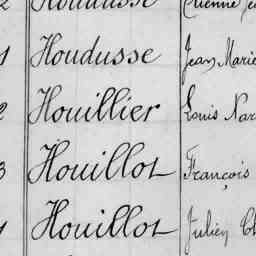 Houdusse
1 Houdusse Jean Marie
2 Houillier Louis Nar
3 Houillot François
1 Houillot Julien